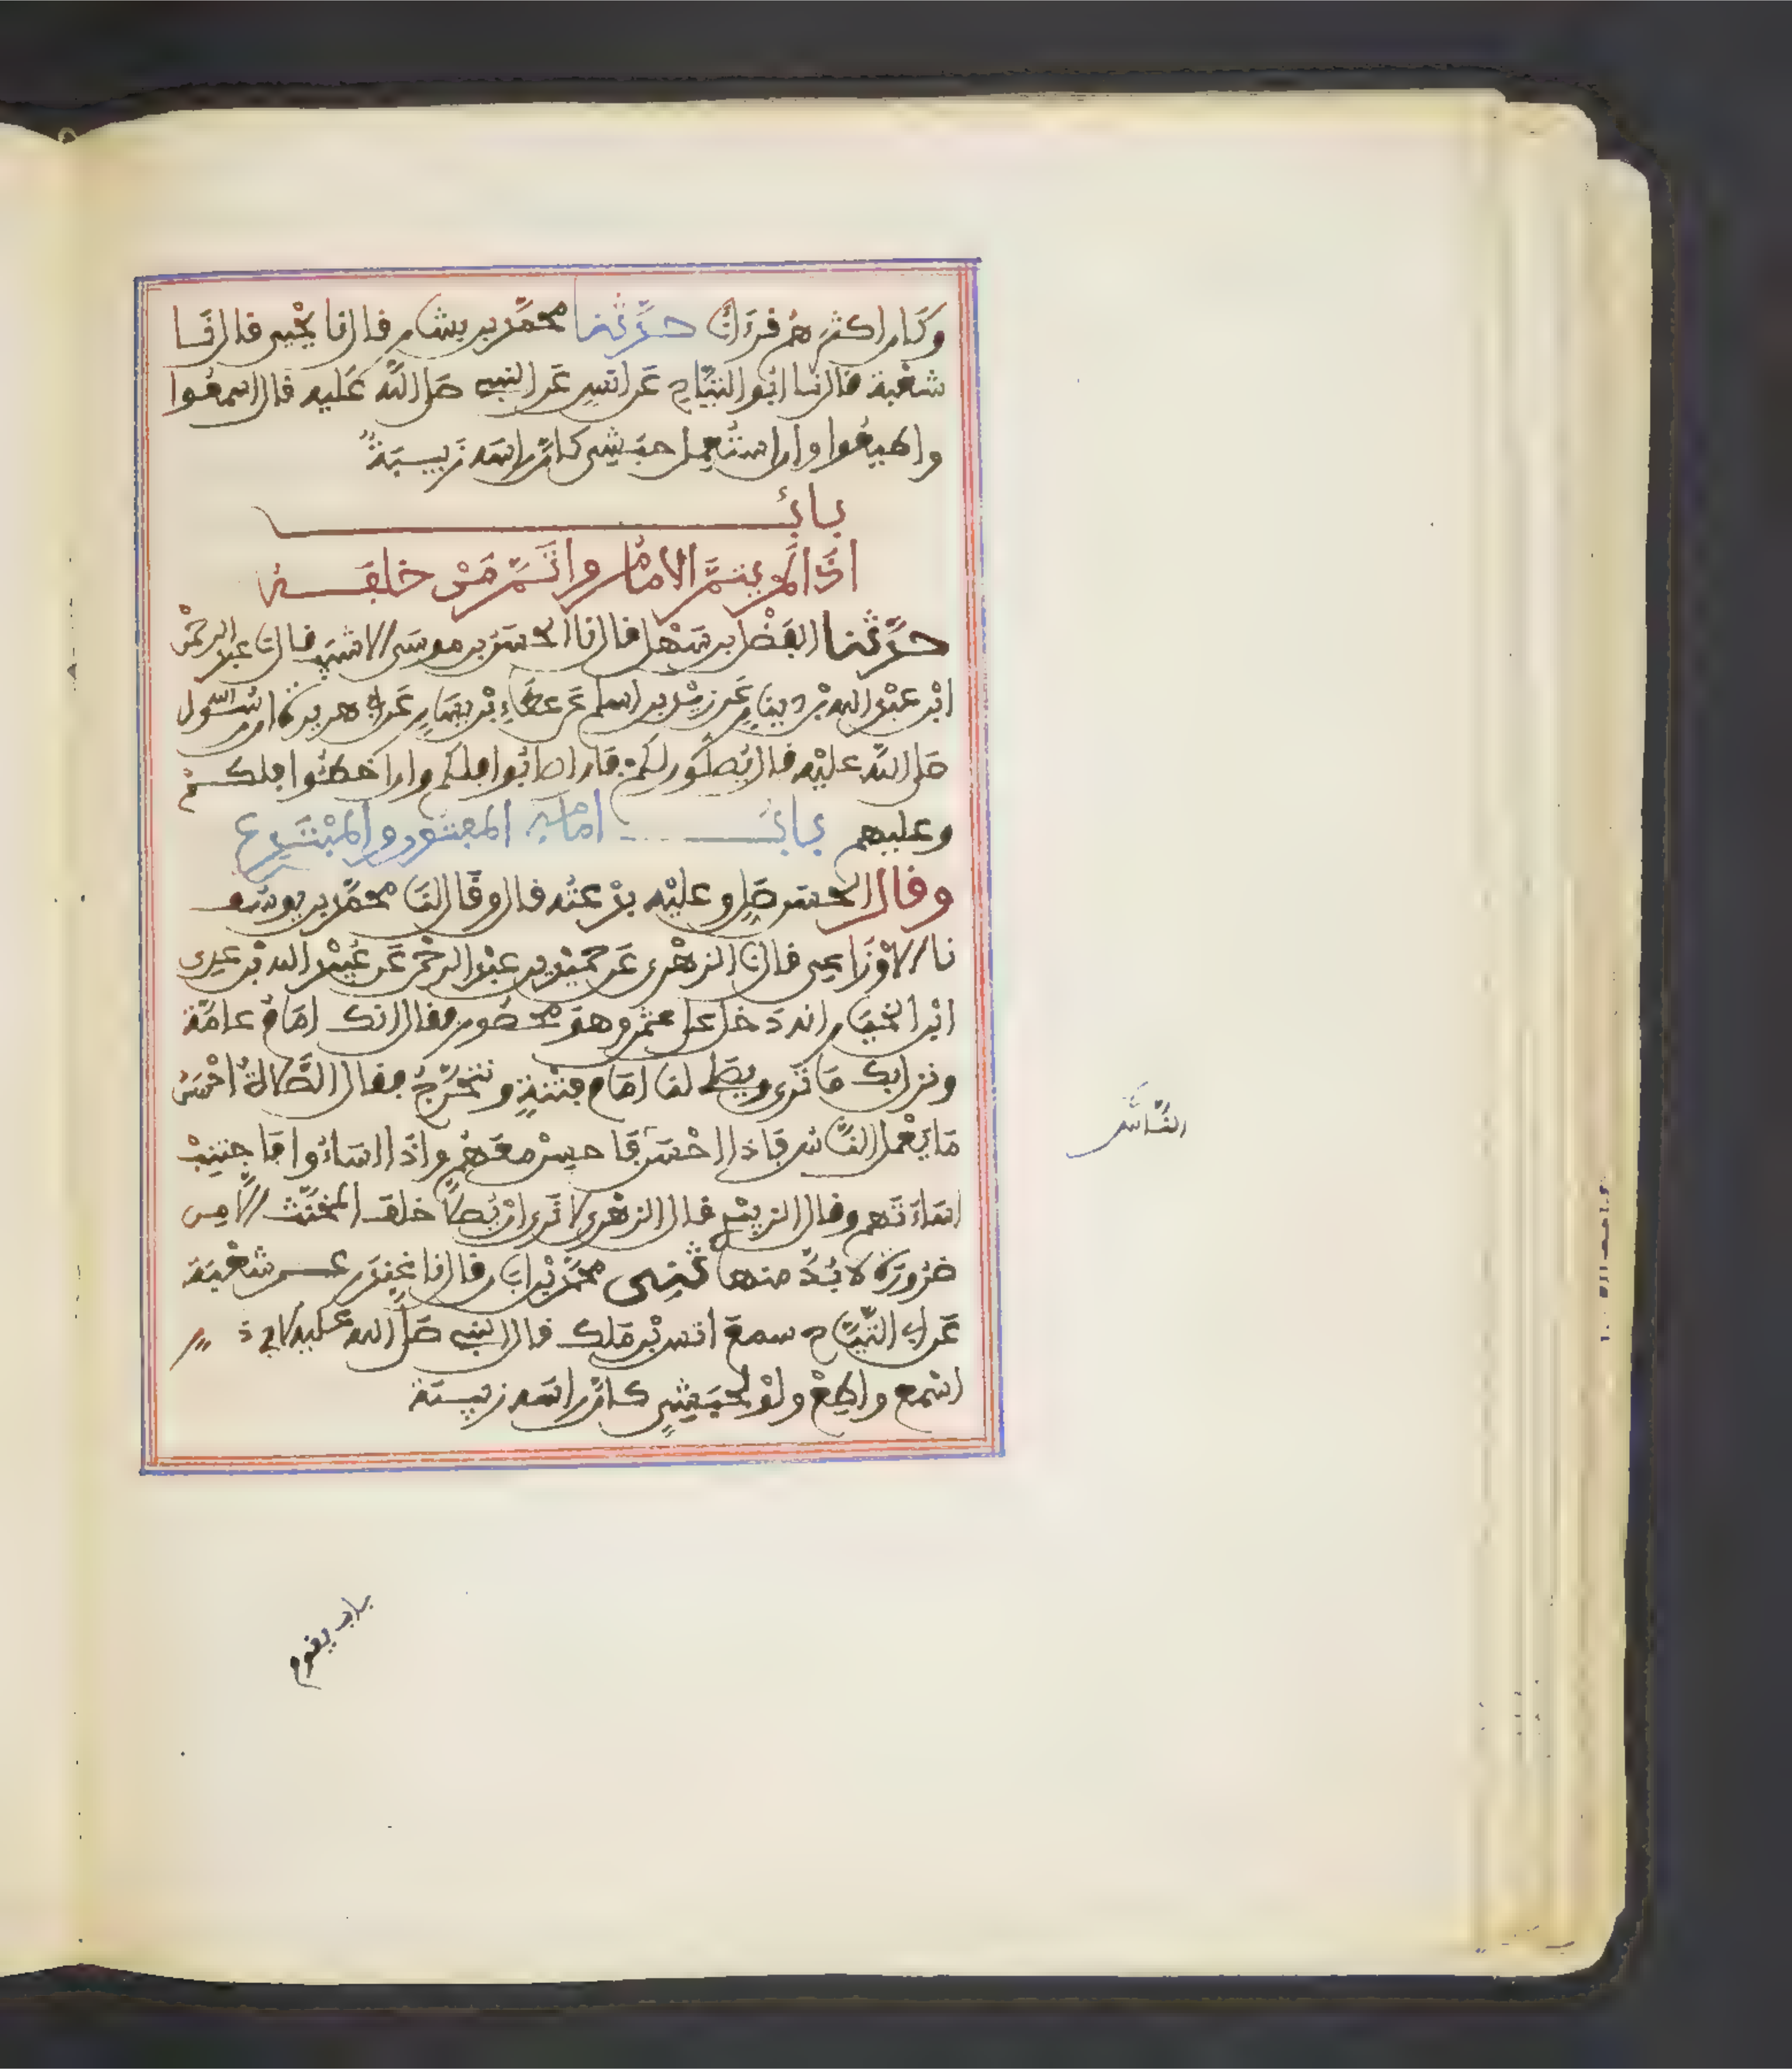 وكان اكثرهم قرءانا حدثنا محمد بن بشار قال نا يحيى قال نا
شعبة قال نا ابو التياح عن انس عن النبي صلى الله عليه قال اسمعوا
واطيعوا وان استعمل حبشي كان راسه زبيبة
باب
اذا لم يتم الامام واتم من خلفه
حدثنا الفضل بن سهل قال نا الحسن بن موسى الاشيب قال نا عبد الرحمن
ابن عبد الله بن دينار عن زيد بن اسلم عن عطاء بن يسار عن ابي هريرة ان رسول الله
صلى الله عليه قال يصلون لكم فان اصابوا فلكم وان اخطئوا فلكم
وعليهم باب امامة المفتون والمبتدع
وقال الحسن صل وعليه بدعته قال وقال لنا محمد بن يوسف
نا الاوزاعي قال نا الزهري عن حميد بن عبد الرحمن عن عبيد الله بن عدي
ابن الخيار انه دخل على عثمن وهو محصور فقال انك امام عامة
ونزل بك ما نرى ويصلي لنا امام فتنة ونتحرج فقال الصلاة احسن
ما يعمل الناس فاذا احسن فاحسن معهم واذا اساءوا فاجتنب
اساءتهم وقال الزبيدي قال الزهري لا نرى ان يصلى خلف المخنث الا من
ضرورة لا بد منها ثني محمد بن ابان قال نا غندر عن شعبة
عن ابي التياح سمع انس بن ملك قال النبي صلى الله عليه لابي ذر
اسمع واطع ولو لحبشي كان راسه زبيبة
الناس
باب يقوم